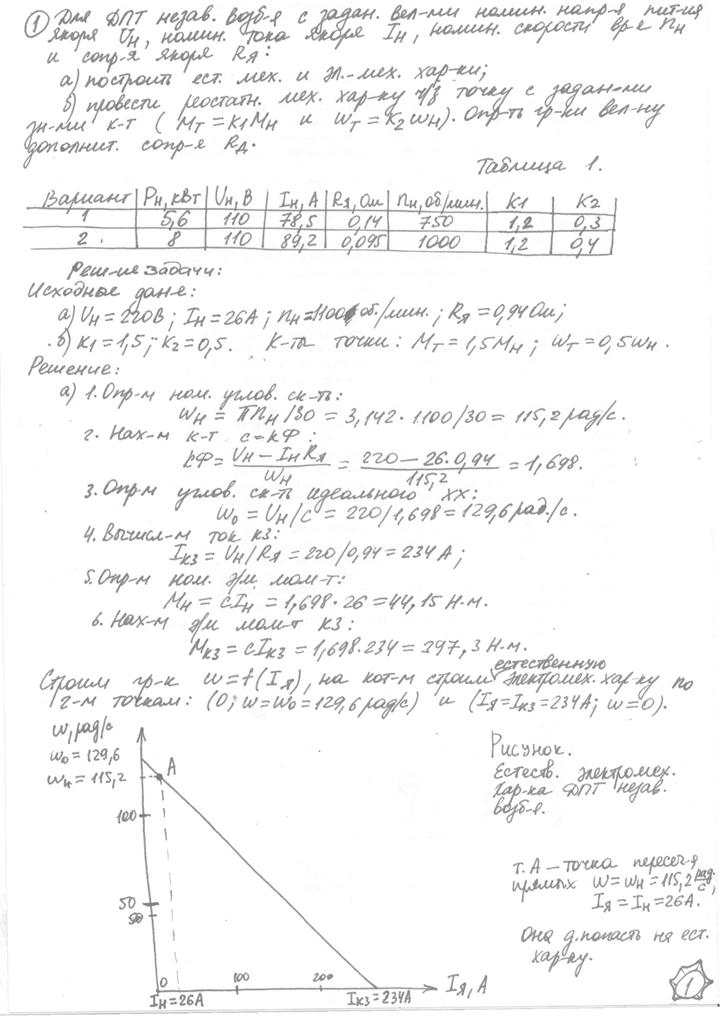 ① Для ДПТ незав. возб-я с задан. вел-ми номин. напр-я пит-ия
якоря Uн, номин. тока якоря Iн, номин. скорости вр-е nн
и сопр-я якоря Rя:
а) построить ест. мех. и эл.-мех. хар-ки;
б) провести реостатн. мех. хар-ку ч/з точку с задан-ми
зн-ми к-т (Mт = к1Mн и ωт = к2ωн). Опр-ть гр-ки вел-ну
дополнит. сопр-е Rд.
Таблица 1.
Вариант | Pн, кВт | Uн, В | Iн, А | Rя, Ом | nн, об/мин. | К1 | К2
1 | 5,6 | 110 | 78,5 | 0,14 | 750 | 1,2 | 0,3
2. | 8 | 110 | 89,2 | 0,095 | 1000 | 1,2 | 0,4
Реш-ие задачи:
Исходные дан-е:
а) Uн = 220В; Iн = 26А; nн = 1100 об./мин.; Rя = 0,94 Ом;
б) к1 = 1,5; к2 = 0,5. К-ты точки: Mт = 1,5Mн; ωт = 0,5ωн.
Решение:
а) 1. Опр-м ном. углов. ск-ть:
ωн = πnн/30 = 3,142·1100/30 = 115,2 рад/с.
2. Нах-м к-т c = кФ:
кФ = (Uн − IнRя)/ωн = (220 − 26·0,94)/115,2 = 1,698.
3. Опр-м углов. ск-ть идеального хх:
ω0 = Uн/c = 220/1,698 = 129,6 рад./с.
4. Вычисл-м ток кз:
Iкз = Uн/Rя = 220/0,94 = 234 А;
5. Опр-м ном. э/м мом-т:
Mн = cIн = 1,698·26 = 44,15 Н·м.
6. Нах-м э/м мом-т КЗ:
Mкз = cIкз = 1,698·234 = 397,3 Н·м.
естественную
Строим гр-к ω = f(Iя), на кот-м строим электромех. хар-ку по
2-м точкам: (0; ω = ω0 = 129,6 рад/с) и (Iя = Iкз = 234А; ω = 0).
ω, рад/с
ω0 = 129,6
ωн = 115,2
А
100
50
50
0
100
200
Iн = 26А
Iкз = 234А
Iя, А
Рисунок.
Естеств. электромех.
хар-ка ДПТ незав.
возб-я.
т. А — точка пересеч-я
прямых ω = ωн = 115,2 рад/с,
Iя = Iн = 26А.
Она д. попасть на ест.
хар-ку.
1